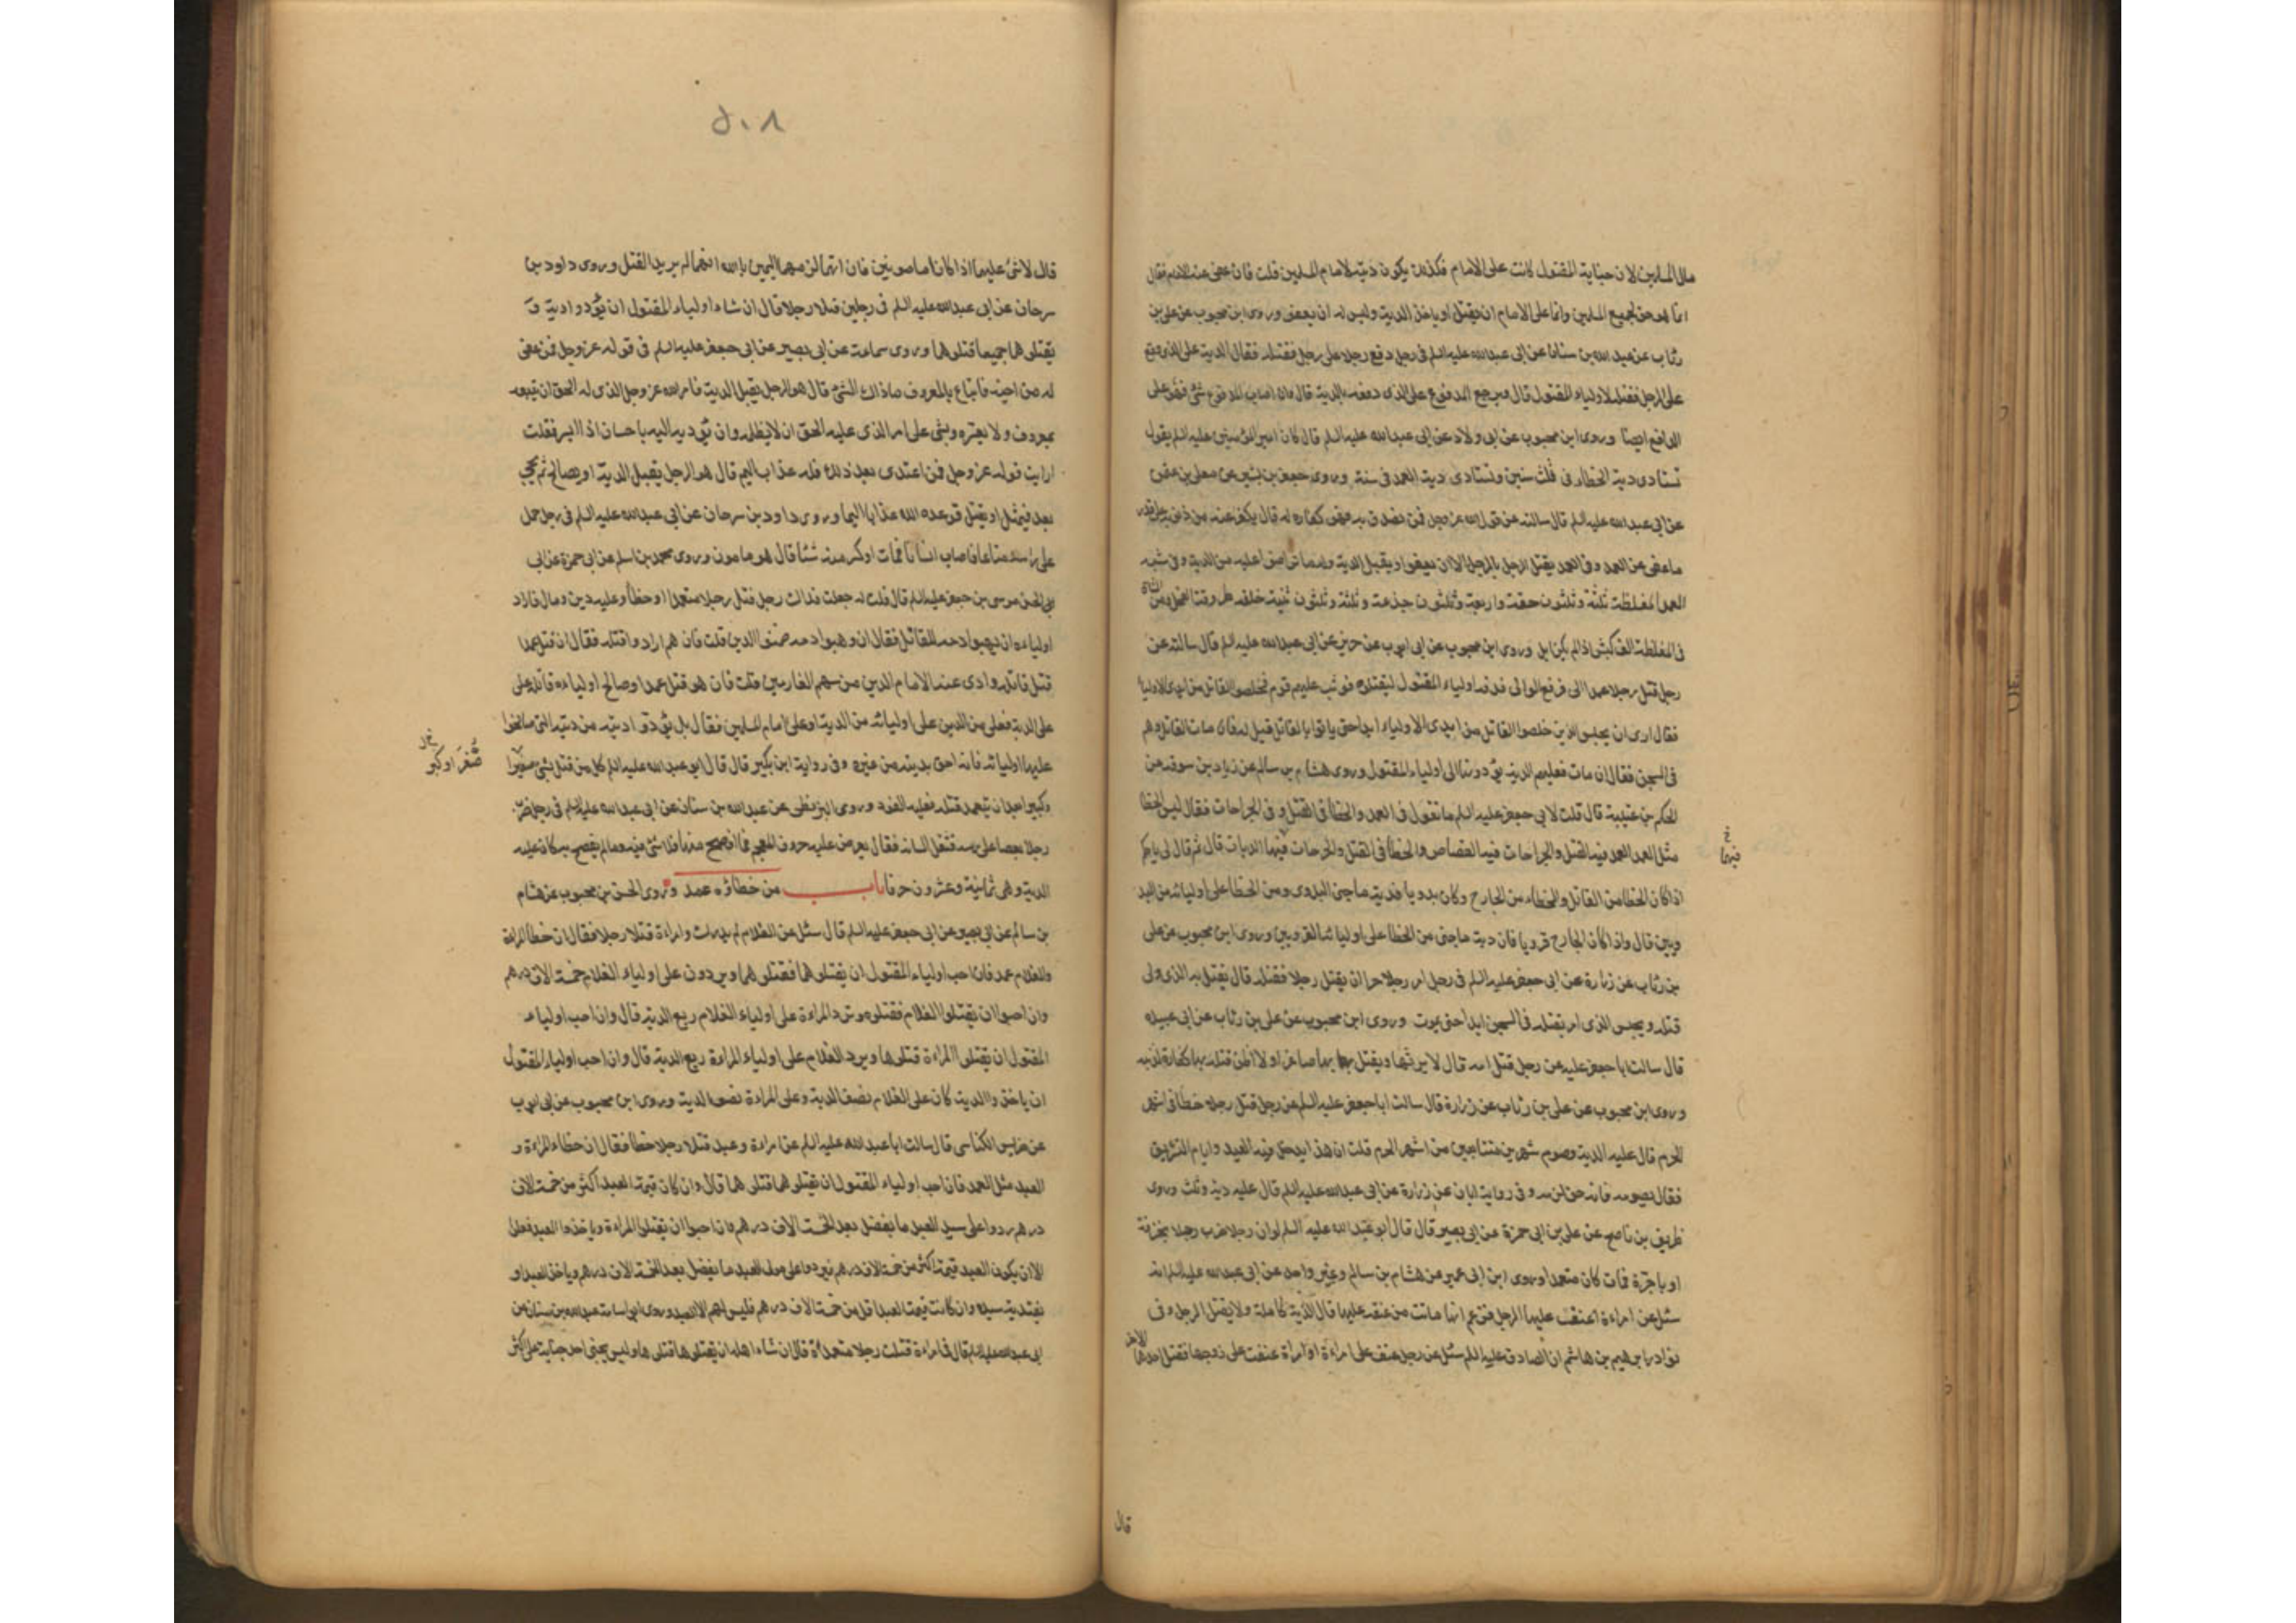 مال المسلمين لان جناية المقتول كانت على الامام فكذلك يكون ديته لامام المسلمين قلت فان عفى عنه الامام فقال
انما هو حق لجميع المسلمين وانما على الامام ان يقتل او ياخذ الدية وليس له ان يعفو وروى ابن محبوب عن على بن
رئاب عن عبد الله بن سنان عن ابى عبد الله عليه السلم فى رجل دفع رجلا على رجل فقتله فقال الدية على الذى وقع
على الرجل فقتله لاولياء المقتول قال ويرجع المدفوع على الذى دفعه بالدية قال وان اصاب المدفوع شئ فهو على
الدافع ايضا وروى ابن محبوب عن ابى ولاد عن ابى عبد الله عليه السلم قال كان امير المؤمنين عليه السلم يقول
تستادى دية الخطاء فى ثلث سنين وتستادى دية العمد فى سنة وروى جعفر بن بشير عن معلى بن عثمن
عن ابى عبد الله عليه السلم قال سالته عن قول الله عز وجل فمن تصدق به فهو كفارة له قال يكفر عنه من ذنوبه على قدر
ما عفى عن العمد وفى العمد يقتل الرجل بالرجل الا ان يعفو او يقبل الدية وله ما تراضوا عليه من الدية وفى شبه
العمد المغلظة ثلثة وثلثون حقة واربعة وثلثون جذعة وثلثة وثلثون ثنية خلفة طروقة الفحل ومن الشاة
فى المغلظة الف كبش اذا لم يكن ابل وروى ابن محبوب عن ابى ايوب عن حريز عن ابى عبد الله عليه السلم قال سالته عن
رجل قتل رجلا عمدا الى فرفع الوالى فدفعه اولياء المقتول ليقتلوه فوثب عليهم قوم فخلصوا القاتل من ايدى الاولياء
فقال ارى ان يحبس الذين خلصوا القاتل من ايدى الاولياء ابدا حتى ياتوا بالقاتل قيل له فان مات القاتل وهم
فى السجن فقال ان مات فعليهم الدية يؤدونها الى اولياء المقتول وروى هشام بن سالم عن زياد بن سوقه عن
الحكم بن عتيبة قال قلت لابى جعفر عليه السلم ما تقول فى العمد والخطأ فى القتل وفى الجراحات فقال ليس الخطا
مثل العمد العمد فيه القتل والجراحات فيها القصاص والخطأ فى القتل والجراحات فيها الديات قال ثم قال لى يا حكم
خ
فيهما
اذا كان الخطا من القاتل والخطاء من الجارح وكان بدويا فدية ما جنى البدوى ومن الخطا على اوليائه من البد
ويين قال واذا كان الجارح قرويا فان دية ما جنى من الخطا على اوليائه القرويين وروى ابن محبوب عن على
بن رئاب عن زرارة عن ابى جعفر عليه السلم فى رجل امر رجلا حرا ان يقتل رجلا فقتله قال يقتل به الذى ولى
قتله ويحبس الذى امر بقتله فى السجن ابدا حتى يموت وروى ابن محبوب عن على بن رئاب عن ابى عبيده
قال سالت ابا جعفر عليه عن رجل قتل امه قال لا يرثها ويقتل بها صاغرا ولا اظن قتله بها كفارة لذنبه
وروى ابن محبوب عن على بن رئاب عن زرارة قال سالت ابا جعفر عليه السلم عن رجل قتل رجلا خطأ فى اشهر
الحرم قال عليه الدية وصوم شهرين متتابعين من اشهر الحرم قلت ان هذا يدخل فيه العيد وايام التشريق
فقال يصومه فانه حق لزمه وفى رواية ابان عن زرارة عن ابى عبد الله عليه السلم قال عليه دية وثلث وروى
ظريف بن ناصح عن على بن ابى حمزة عن ابى بصير قال قال ابو عبد الله عليه السلم لو ان رجلا ضرب رجلا بخزفة
او باجرة فمات كان متعمدا وروى ابن ابى عمير عن هشام بن سالم وغير واحد عن ابى عبد الله عليه السلم انه
سئل عن امراءة اعنف عليها الرجل فزعم انها ماتت من عنفه عليها قال الدية كاملة ولا يقتل الرجل وفى
نوادر ابرهيم بن هاشم ان الصادق عليه السلم سئل عن رجل عنف على امراءة او امراة عنفت على زوجها فقتل احدهما الاخر
قال
٥٠٨
قال لا شئ عليهما اذا كانا مامونين فان اتهما لزمهما اليمين بالله انهما لم يريدا القتل وروى داود بن
سرحان عن ابى عبد الله عليه السلم فى رجلين قتلا رجلا قال ان شاء اولياء المقتول ان يؤدوا دية و
يقتلوهما جميعا قتلوهما وروى سماعة عن ابى بصير عن ابى جعفر عليه السلم فى قوله عز وجل فمن عفى
له من اخيه فاتباع بالمعروف ما ذاك الشئ قال هو الرجل يقبل الدية فامر الله عز وجل الذى له الحق ان يتبعه
بمعروف ولا يعتره وينهى على امر الذى عليه الحق ان لا يظلمه وان يؤديه اليه باحسان اذا ايسر فقلت
ارايت قوله عز وجل فمن اعتدى بعد ذلك فله عذاب اليم قال هو الرجل يقبل الدية او يصالح ثم يجئ
بعد فيمثل او يقتل فوعده الله عذابا اليما وروى داود بن سرحان عن ابى عبد الله عليه السلم فى رجل حمل
على راسه متاعا فاصاب انسانا فمات او كسر منه شئا قال هو مامون وروى محمد بن اسلم عن ابى حمزة عن ابى
ابى الحسن موسى بن جعفر عليه السلم قال قلت له جعلت فداك رجل قتل رجلا متعمدا او خطأ وعليه دين ومال فاراد
اولياءه ان يهبوا دمه للقاتل فقال ان وهبوا دمه ضمنوا الدين قلت فان هم ارادوا قتله فقال ان قتل عمدا
قتل قاتله وادى عنه الامام الدين من سهم الغارمين قلت فان هو قتل عمدا وصالح اولياءه قاتله على
على الدية فعلى من الدين على اوليائه من الدية او على امام المسلمين فقال بل يؤدوا دينه من ديته التى صالحوا
عليها اولياءه فانه احق بديته من غيره وفى رواية ابن بكير قال قال ابو عبد الله عليه السلم كل من قتل بشئ صغيرا
خ ل
صغر او كبر
وكبير ابعد ان يتعمد قتله فعليه القود وروى البزنطى عن عبد الله بن سنان عن ابى عبد الله عليه السلم فى رجل ضرب
رجلا بعصا على راسه فثقل لسانه فقال يعرض عليه حروف المعجم فما افصح منها فلا شئ فيه وما لم يفصح به كان عليه
الدية وهى ثمانية وعشرون حرفا باب من خطاؤه عمد وروى الحسن بن محبوب عن هشام
بن سالم عن ابى بصير عن ابى جعفر عليه السلم قال سئل عن الغلام لم يدرك وامراءة قتلا رجلا فقال ان خطأ المراءة
والغلام عمد فان احب اولياء المقتول ان يقتلوهما فقتلوهما ويردون على اولياء الغلام خمسة الاف درهم
وان احبوا ان يقتلوا الغلام فقتلوه وترد المراءة على اولياء الغلام ربع الدية قال وان احب اولياء
المقتول ان يقتلوا المراءة قتلوها ويرد الغلام على اولياء المراءة ربع الدية قال وان احب اولياء المقتول
ان ياخذوا الدية كان على الغلام نصف الدية وعلى المراءة نصف الدية وروى ابن محبوب عن ابى ايوب
عن ضريس الكناسى قال سالت ابا عبد الله عليه السلم عن امراءة وعبد قتلا رجلا خطأ فقال ان خطاء المراءة و
العبد مثل العمد فان احب اولياء المقتول ان يقتلوهما قتلوهما قال وان كان قيمة العبد اكثر من خمسة الاف
درهم ردوا على سيد العبد ما يفضل بعد الخمسة الاف درهم وان احبوا ان يقتلوا المراءة وياخذوا العبد فعلوا
الا ان يكون العبد قيمته اكثر من خمسة الاف درهم فيردوا على مولى العبد ما يفضل بعد الخمسة الاف درهم وياخذوا العبد او
يفتديه سيده وان كانت قيمة العبد اقل من خمسة الاف درهم فليس لهم الا العبد وروى ابو اسامة عبد الله بن سنان عن
ابى عبد الله عليه السلم قال فى امراءة قتلت رجلا متعمداة قال ان شاء اهله ان يقتلوها قتلوها وليس يجنى احد جناية على اكثر